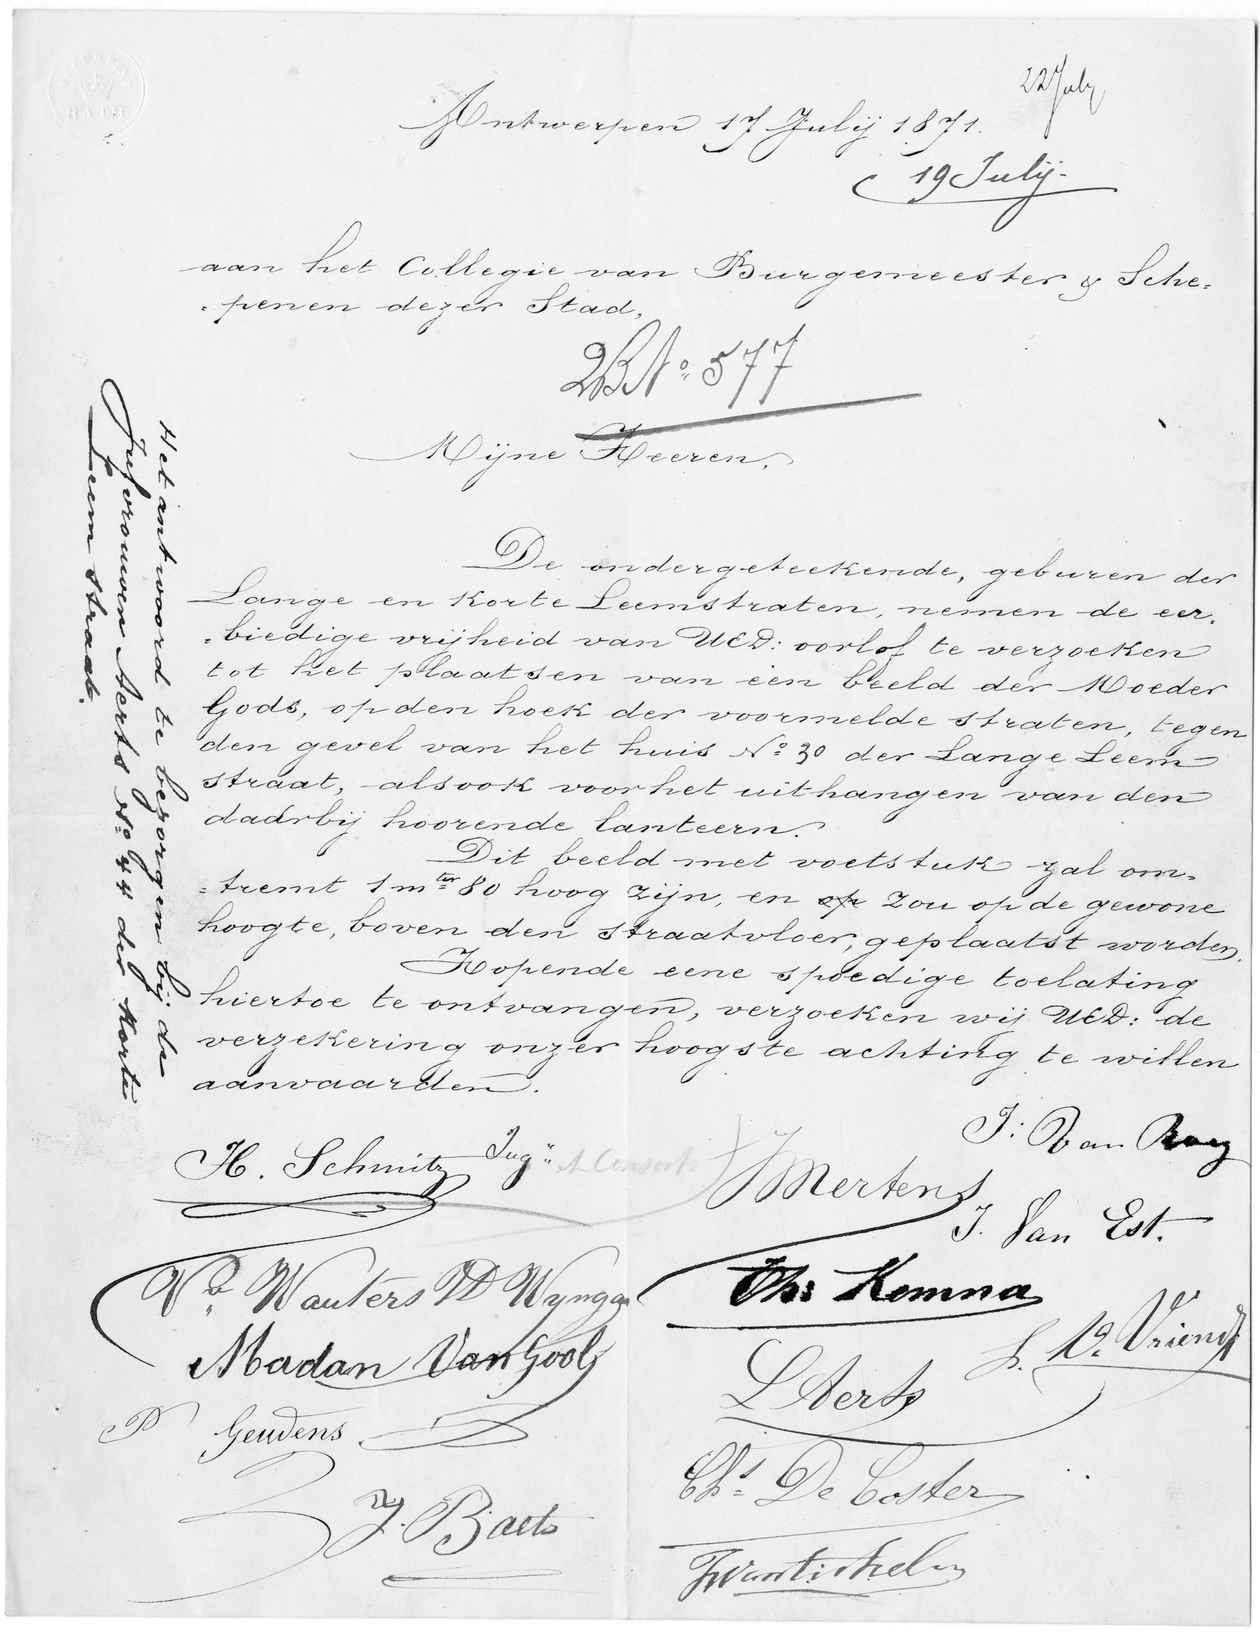 22 July
Antwerpen 17 Julij 1871.
19 Julij.
aan het Collegie van Burgemeester & Sche=
=penen dezer Stad,
2B No 577
Mijne Heeren,
De ondergeteekende, geburen der
Lange en Korte Leemstraten, nemen de eer=
=biedige vrijheid van UED: oorlof te verzoeken
tot het plaatsen van een beeld der Moeder
Gods, op den hoek der voormelde straten, tegen
den gevel van het huis No 30 der Lange Leem
straat, alsook voor het uithangen van den
daarbij hoorende lanteern.
Dit beeld met voetstuk zal om=
=tremt 1 mter 80 hoog zijn, en op zou op de gewone
hoogte, boven den straatvloer, geplaatst worden.
Hopende eene spoedige toelating
hiertoe te ontvangen, verzoeken wij UED: de
verzekering onzer hoogste achting te willen
aanvaarden.
Het antwoord te bezorgen bij de
Jufvrouwen Aerts No 44 der Korte
Leem straat.
J: Van
H. Schmitz
Mertens
J. Van Est.
Ve Wauters
Chs Kemna
L. De Vriendt
Madan Van Gool
L Aerts
P Geudens
Chs De Coster
J. Baets